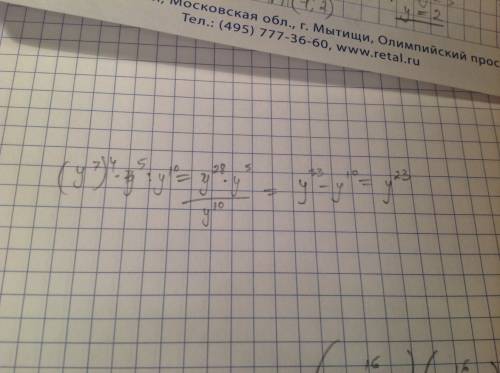 y = 2
, Московская обл., г. Мытищи, Олимпийский прос
Тел.: (495) 777-36-60, www.retal.ru
(y⁷)⁴ · y⁵ : y¹⁰ = y²⁸ · y⁵ / y¹⁰ = y³³ - y¹⁰ = y²³